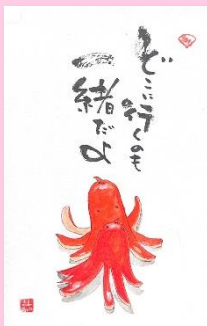 どこに行くのも
一緒だよ